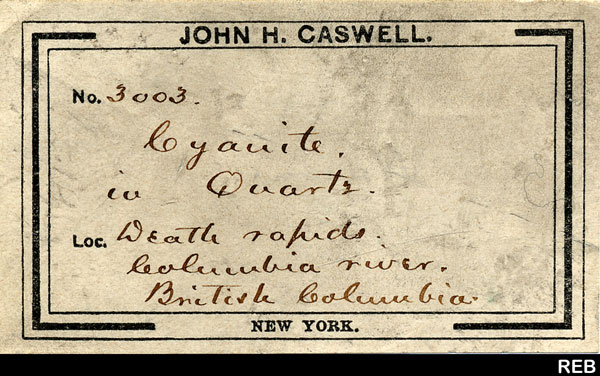 JOHN H. CASWELL.
No. 3003.
Cyanite.
in Quartz.
Loc. Death rapids.
Columbia river.
British Columbia.
NEW YORK.
REB